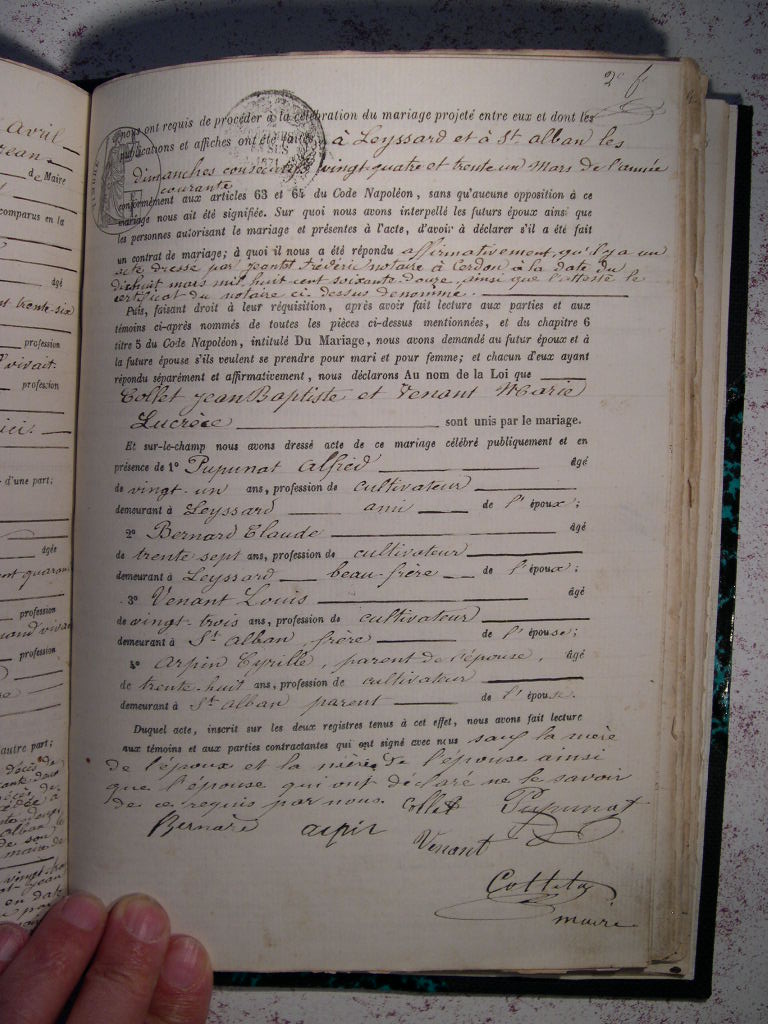 2e f
nous ont requis de procéder à la célébration du mariage projeté entre eux et dont les
publications et affiches ont été faites à Leyssard et à St. alban les
dimanches consecutifs vingt quatre et trente un Mars de l'année
courante
conformément aux articles 63 et 64 du Code Napoléon, sans qu'aucune opposition à ce
mariage nous ait été signifiée. Sur quoi nous avons interpellé les futurs époux ainsi que
les personnes autorisant le mariage et présentes à l'acte, d'avoir à déclarer s'il a été fait
un contrat de mariage; à quoi il nous a été répondu affirmativement, qu'il y a un
acte dressé par Jeantet Frédéric notaire à Cerdon à la date du
dixhuit mars mil huit cent soixante douze, ainsi que l'atteste le
certificat du notaire ci-dessus dénommé.
Puis, faisant droit à leur réquisition, après avoir fait lecture aux parties et aux
témoins ci-après nommés de toutes les pièces ci-dessus mentionnées, et du chapitre 6
titre 5 du Code Napoléon, intitulé Du Mariage, nous avons demandé au futur époux et à
la future épouse s'ils veulent se prendre pour mari et pour femme; et chacun d'eux ayant
répondu séparément et affirmativement, nous déclarons Au nom de la Loi que
Collet Jean Baptiste et Venant Marie
Lucrèce sont unis par le mariage.
Et sur-le-champ nous avons dressé acte de ce mariage célébré publiquement et en
présence de 1° Pupunat Alfred âgé
de vingt-un ans, profession de cultivateur
demeurant à Leyssard ami de l'époux;
2° Bernard Claude âgé
de trente sept ans, profession de cultivateur
demeurant à Leyssard beau-frère de l'époux;
3° Venant Louis âgé
de vingt-trois ans, profession de cultivateur
demeurant à St. alban frère de l'épouse;
4° Arpin Cyrille, parent de l'épouse, âgé
de trente-huit ans, profession de cultivateur
demeurant à St. alban parent de l'épouse.
Duquel acte, inscrit sur les deux registres tenus à cet effet, nous avons fait lecture
aux témoins et aux parties contractantes qui ont signé avec nous sauf la mère
de l'époux et la mère de l'épouse ainsi
que l'épouse qui ont déclaré ne le savoir
de ce requis par nous. Collet Pupunat
Bernard arpin
Venant
maire